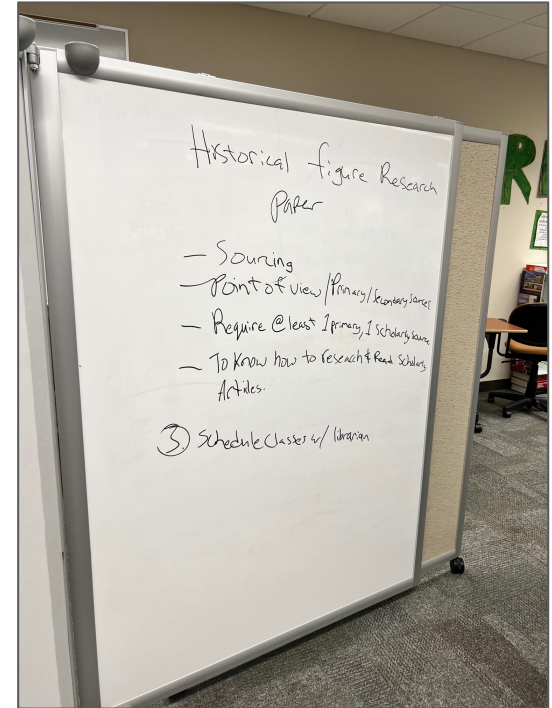 Historical figure Research
Paper
— Sourcing
— Point of view/Primary/Secondary Sources
— Require @ least 1 primary, 1 Scholarly Source
— To Know how to research & Read Scholarly
Articles.
③ Schedule Classes w/ librarian
R